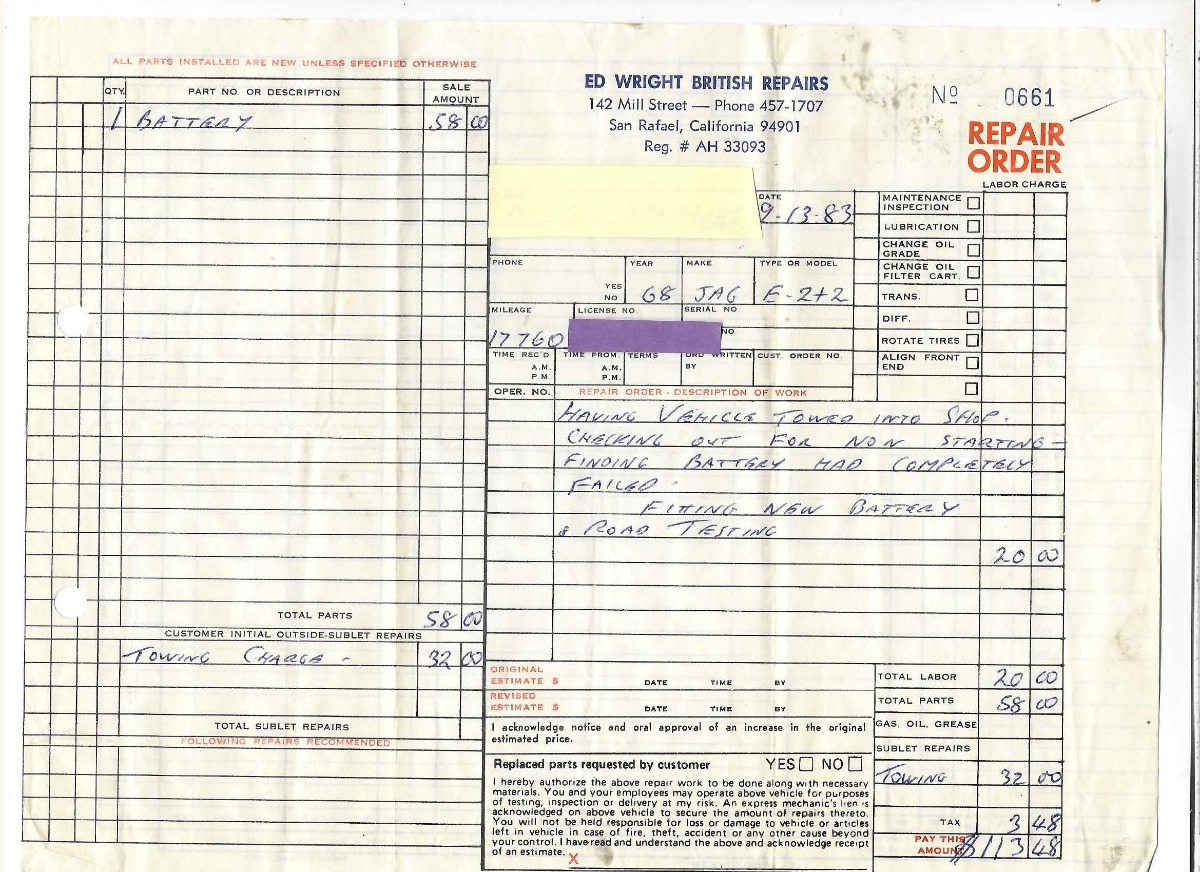 ALL PARTS INSTALLED ARE NEW UNLESS SPECIFIED OTHERWISE
QTY. PART NO. OR DESCRIPTION SALE AMOUNT
1 BATTERY 58 00
TOTAL PARTS 58 00
CUSTOMER INITIAL OUTSIDE-SUBLET REPAIRS
TOWING CHARGE - 32 00
TOTAL SUBLET REPAIRS
FOLLOWING REPAIRS RECOMMENDED
ED WRIGHT BRITISH REPAIRS
142 Mill Street — Phone 457-1707
San Rafael, California 94901
Reg. # AH 33093
Nº 0661
REPAIR
ORDER
LABOR CHARGE
DATE
9-13-83
PHONE YES NO YEAR MAKE TYPE OR MODEL
68 JAG E-2+2
MILEAGE LICENSE NO. SERIAL NO
17760 NO
TIME REC'D A.M. P.M. TIME PROM. A.M. P.M. TERMS ORD WRITTEN BY CUST. ORDER NO.
MAINTENANCE INSPECTION
LUBRICATION
CHANGE OIL GRADE
CHANGE OIL FILTER CART.
TRANS.
DIFF.
ROTATE TIRES
ALIGN FRONT END
OPER. NO. REPAIR ORDER - DESCRIPTION OF WORK
HAVING VEHICLE TOWED INTO SHOP.
CHECKING OUT FOR NON STARTING —
FINDING BATTERY HAD COMPLETELY
FAILED.
FITTING NEW BATTERY
& ROAD TESTING
20 00
ORIGINAL
ESTIMATE $ DATE TIME BY
REVISED
ESTIMATE $ DATE TIME BY
I acknowledge notice and oral approval of an increase in the original
estimated price.
Replaced parts requested by customer YES NO
I hereby authorize the above repair work to be done along with necessary
materials. You and your employees may operate above vehicle for purposes
of testing, inspection or delivery at my risk. An express mechanic's lien is
acknowledged on above vehicle to secure the amount of repairs thereto.
You will not be held responsible for loss or damage to vehicle or articles
left in vehicle in case of fire, theft, accident or any other cause beyond
your control. I have read and understand the above and acknowledge receipt
of an estimate.
X
TOTAL LABOR 20 00
TOTAL PARTS 58 00
GAS, OIL, GREASE
SUBLET REPAIRS
TOWING 32 00
TAX 3 48
PAY THIS
AMOUNT $113 48